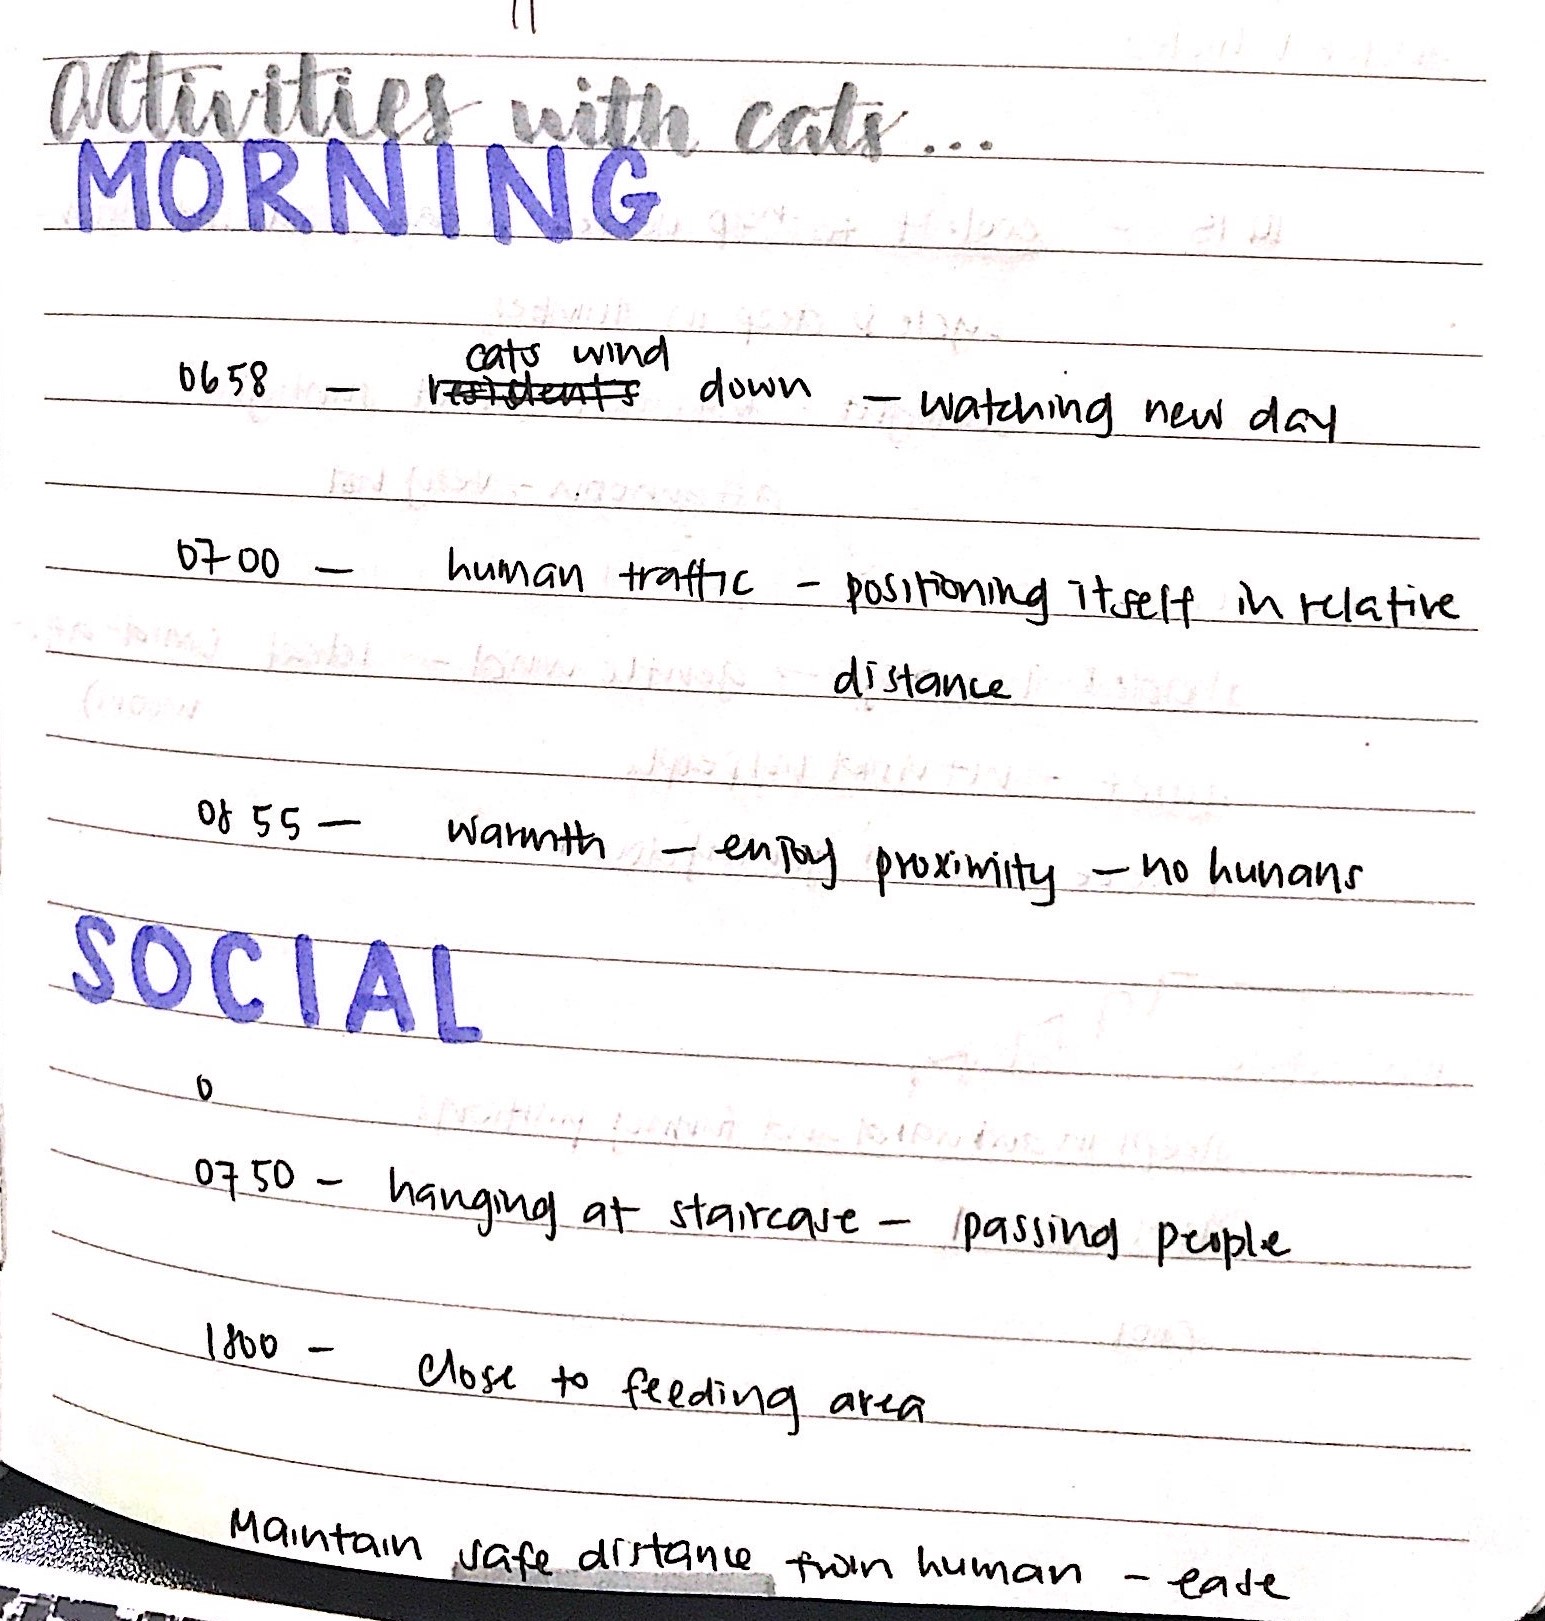 activities with cats...
MORNING
cats wind
0658 — residents down — watching new day
0700 — human traffic - positioning itself in relative
distance
0855 — warmth — enjoy proximity — no humans
SOCIAL
0
0750 — hanging at staircase — passing people
1800 — close to feeding area
Maintain safe distance from human - ease